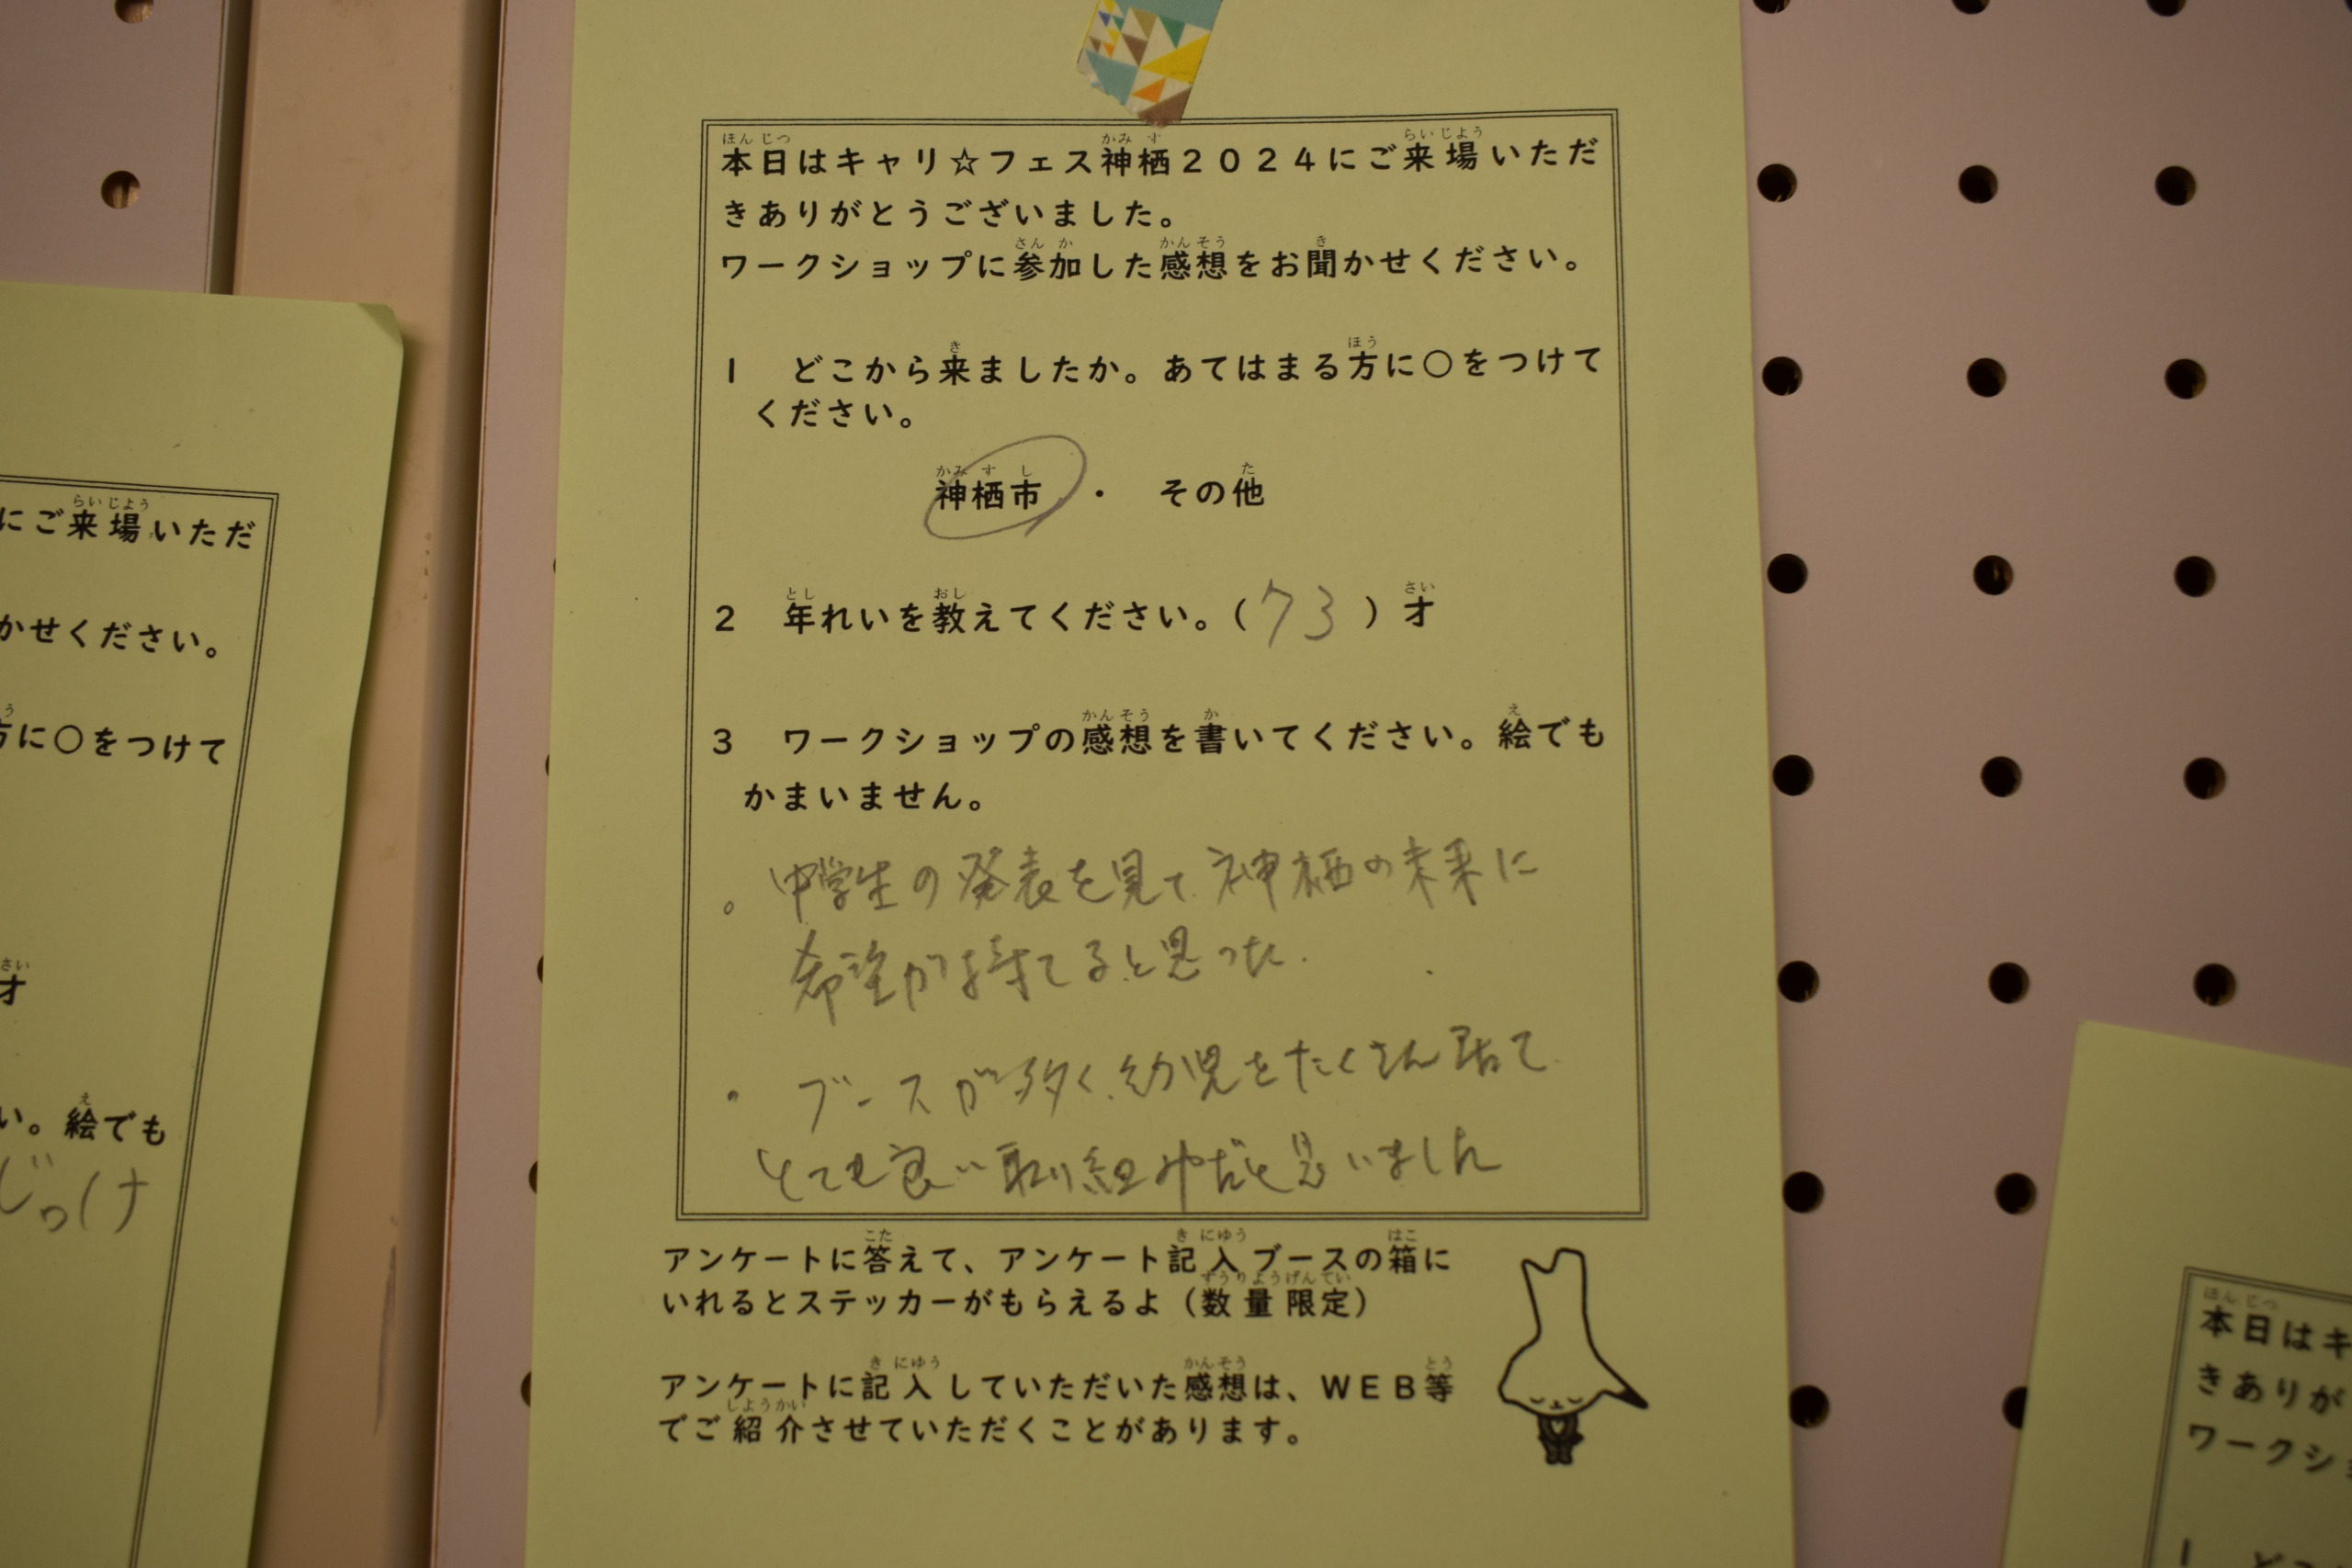 本日はキャリ☆フェス神栖2024にご来場いただ
きありがとうございました。
ワークショップに参加した感想をお聞かせください。
1 どこから来ましたか。あてはまる方に○をつけて
ください。
神栖市 ・ その他
2 年れいを教えてください。(73)才
3 ワークショップの感想を書いてください。絵でも
かまいません。
。中学生の発表を見て神栖の未来に
希望が持てると思った.
・ブースが多く、幼児もたくさん居て
とても良い取り組みだと思いました
アンケートに答えて、アンケート記入ブースの箱に
いれるとステッカーがもらえるよ(数量限定)
アンケートに記入していただいた感想は、WEB等
でご紹介させていただくことがあります。
にご来場いただ
かせください。
方に○をつけて
才
い。絵でも
じっけ
本日はキ
きありが
ワークショ